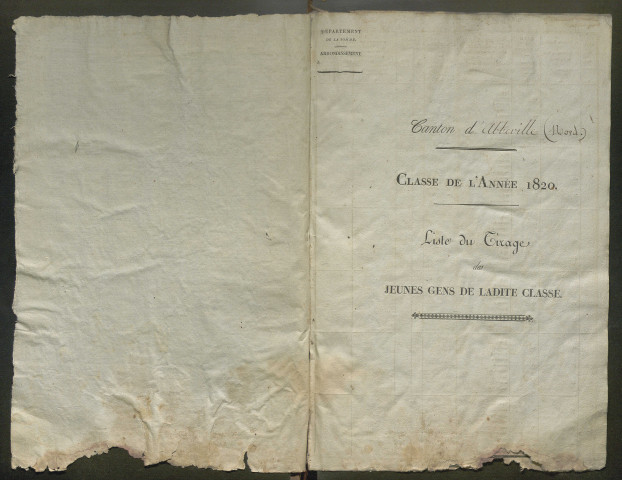 DÉPARTEMENT
DE LA SOMME.
ARRONDISSEMENT
Canton d'Abbeville (Nord.)
CLASSE DE L'ANNÉE 1820.
Liste du Tirage
des
JEUNES GENS DE LADITE CLASSE.